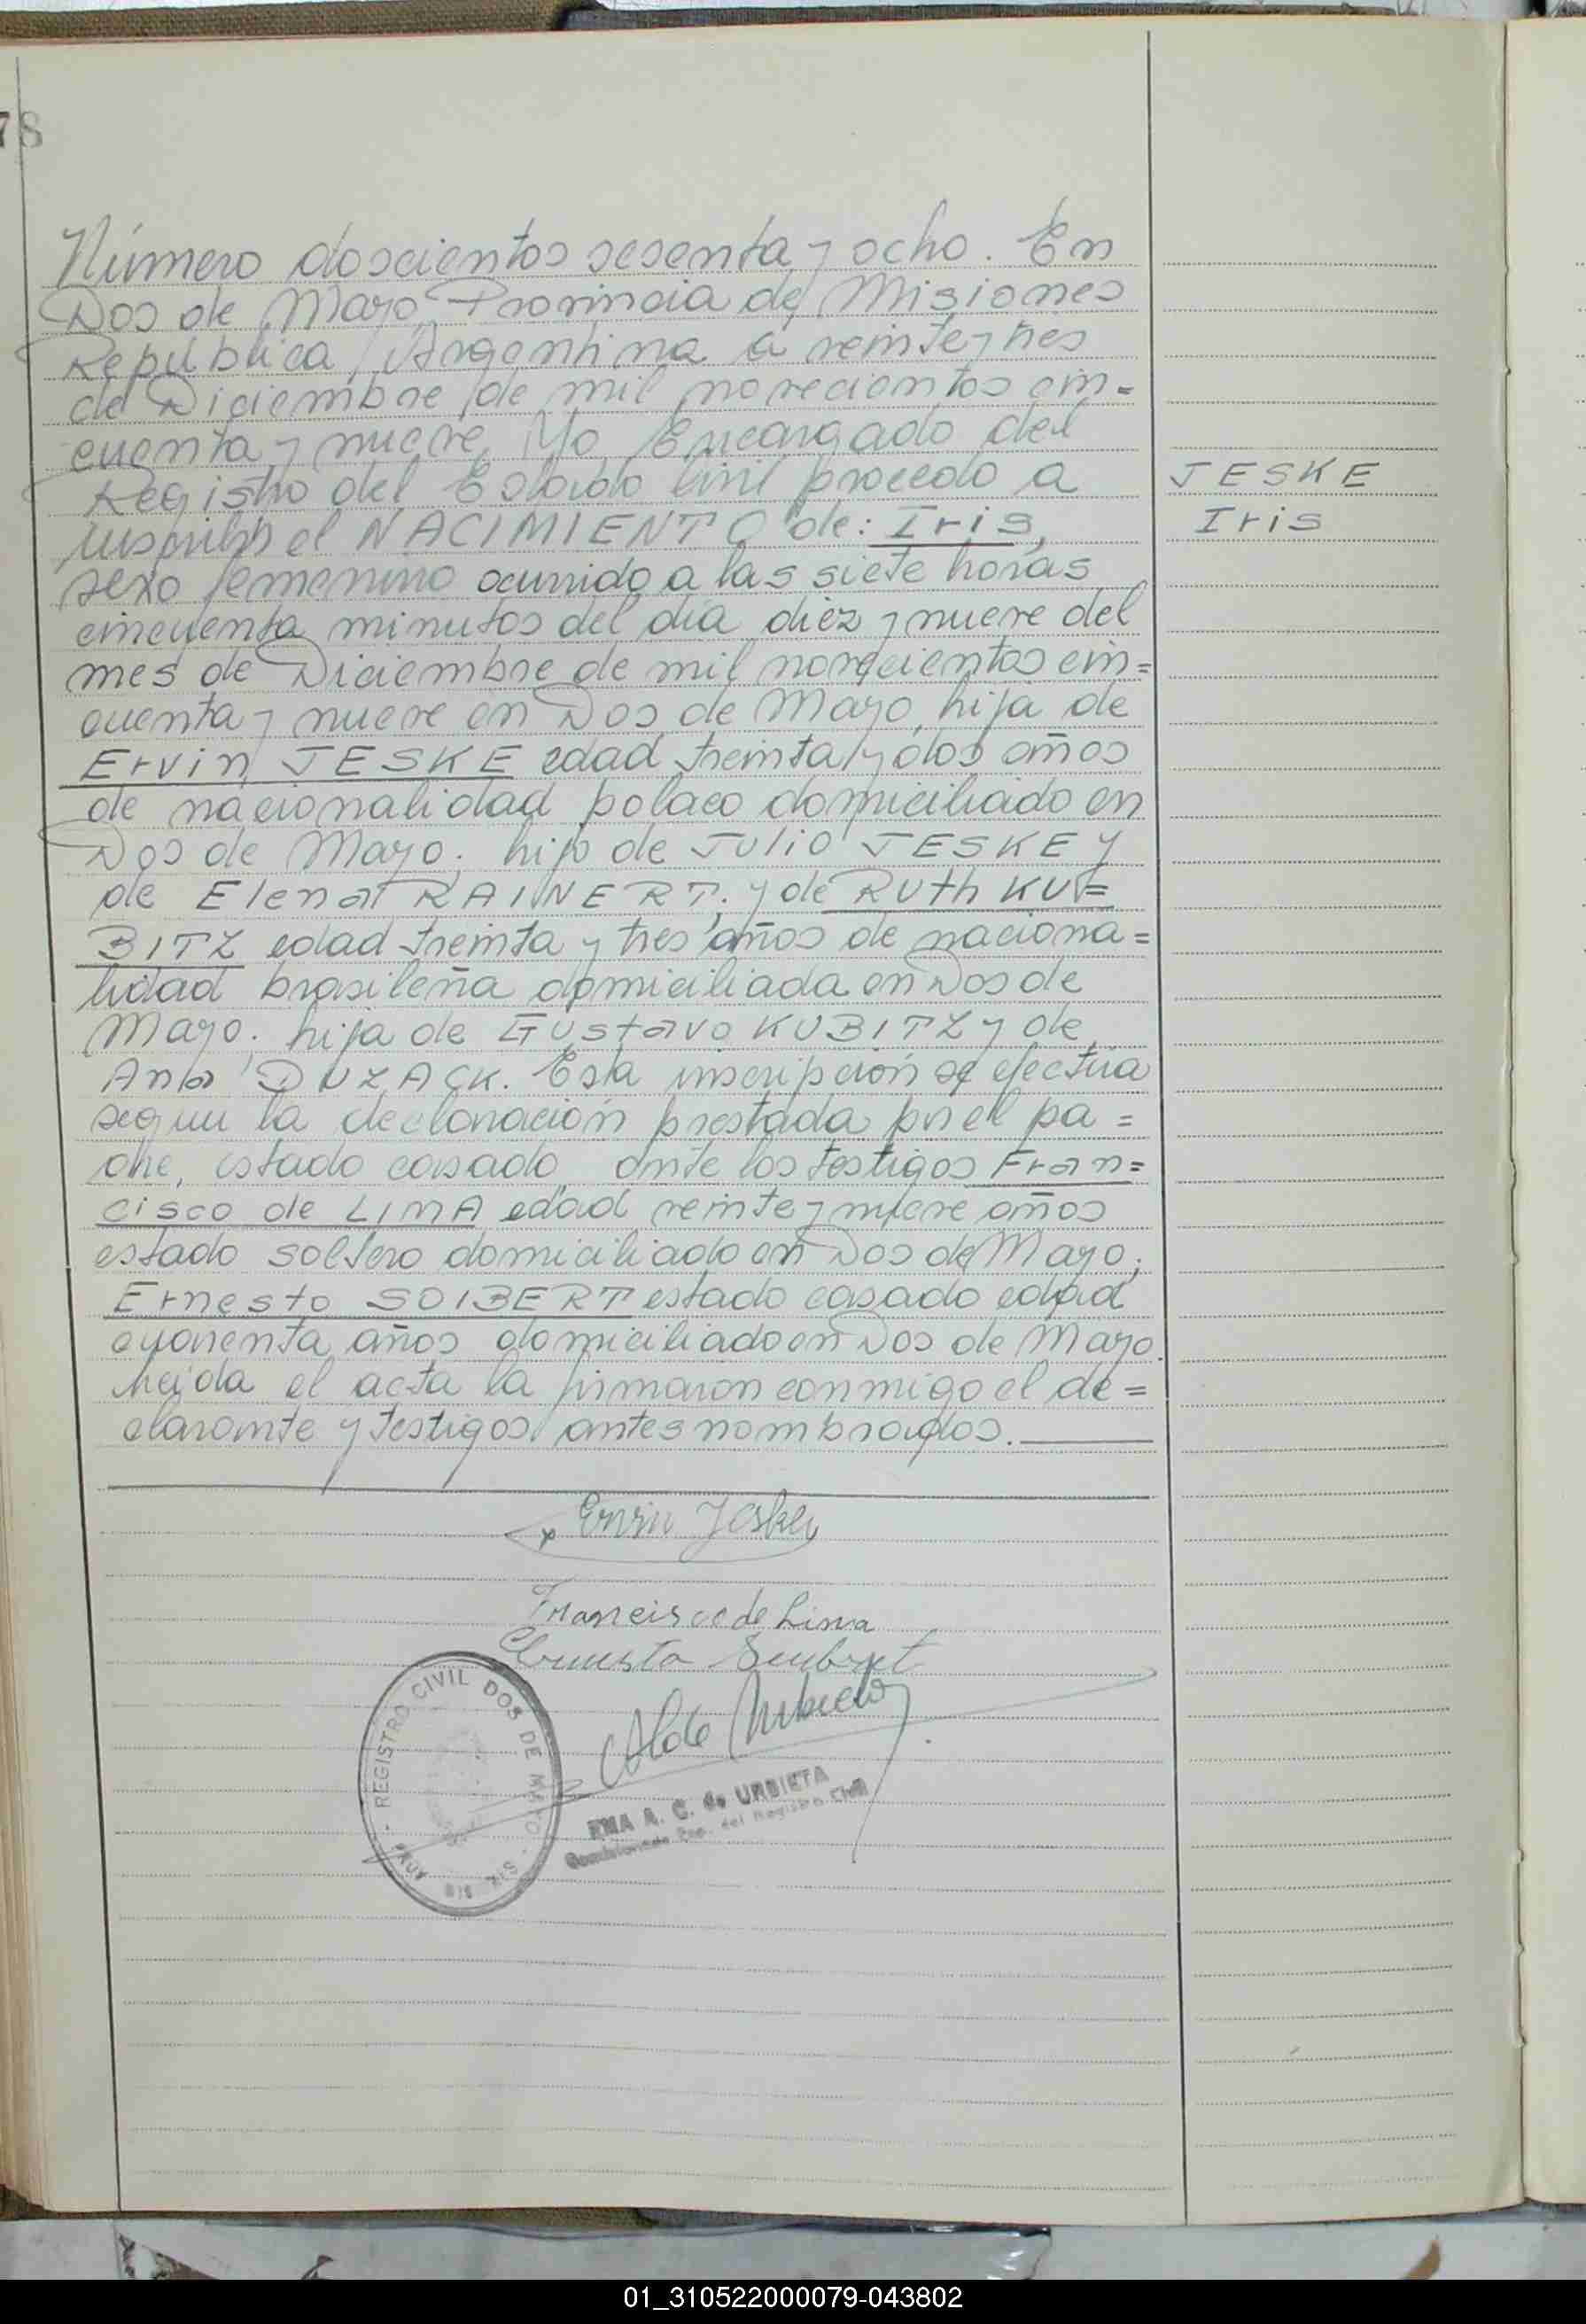 78
Número doscientos sesenta y ocho. En
Dos de Mayo Provincia de Misiones
República Argentina a veinte y tres
de Diciembre de mil novecientos cin=
cuenta y nueve, Yo Encargado del
Registro del Estado Civil procedo a
JESKE
inscribir el NACIMIENTO de: Iris,
Iris
sexo femenino ocurrido a las siete horas
cincuenta minutos del día diez y nueve del
mes de Diciembre de mil novecientos cin=
cuenta y nueve en Dos de Mayo, hija de
Ervin JESKE edad treinta y dos años
de nacionalidad polaco domiciliado en
Dos de Mayo; hijo de Julio JESKE y
de Elena RAINERT; y de Ruth KU=
BITZ edad treinta y tres años de naciona=
lidad brasileña domiciliada en Dos de
Mayo; hija de Gustavo KUBITZ y de
Ana DUZACK. Esta inscripción se efectúa
segun la declaración prestada por el pa=
dre, estado casado, ante los testigos Fran=
cisco de LIMA edad veinte y nueve años
estado soltero domiciliado en Dos de Mayo;
Ernesto SOIBERT estado casado edad
cuarenta años domiciliado en Dos de Mayo.
Leída el acta la firmaron conmigo el de=
clarante y testigos antes nombrados.
Ervin Jeske
Francisco de Lima
Ernesto
REGISTRO CIVIL DOS DE MAYO
EMA A. C. de URBIETA
del Registro Civil
01_310522000079-043802